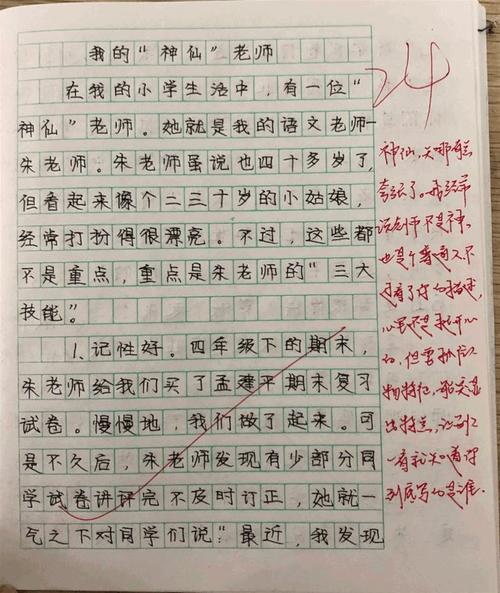 我的“神仙”老师
24
在我的小学生活中，有一位“
神仙”老师。她就是我的语文老师—
朱老师。朱老师虽说也四十多岁了，
但看起来像个二三十岁的小姑娘，
经常打扮得很漂亮。不过，这些都
不是重点，重点是朱老师的“三大
技能”。
1、记性好。四年级下的期末，
朱老师给我们买了孟建平期末复习
试卷。慢慢地，我们做了起来。可
是不久后，朱老师发现有少部分同
学试卷讲评完不及时订正，她就一
气之下对同学们说：“最近，我发现
神仙，
夸张了。我经常
说老师不是神，
也是个普通人，不
过看了你的描述，
心里还是挺开心
的，但要抓住人
物特征，
出特点，让别人
一看就知道你
到底写的是谁.